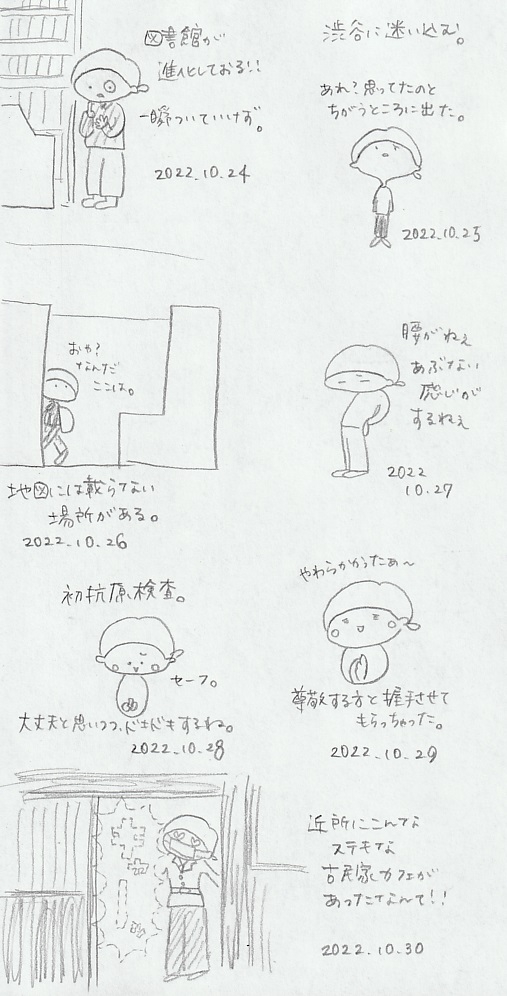 図書館が
進化しておる!!
一瞬ついていけず。
2022.10.24
渋谷に迷い込む。
あれ?思ってたのと
ちがうところに出た。
2022.10.25
おや?
なんだ
ここは。
地図には載らない
場所がある。
2022.10.26
腰がねぇ
あぶない
感じが
するねぇ
2022
10.27
初抗原検査。
セーフ。
大丈夫と思いつつ、ドキドキするね。
2022.10.28
やわらかかったぁ~
尊敬する方と握手させて
もらっちゃった。
2022.10.29
近所にこんな
ステキな
古民家カフェが
あったなんて!!
2022.10.30